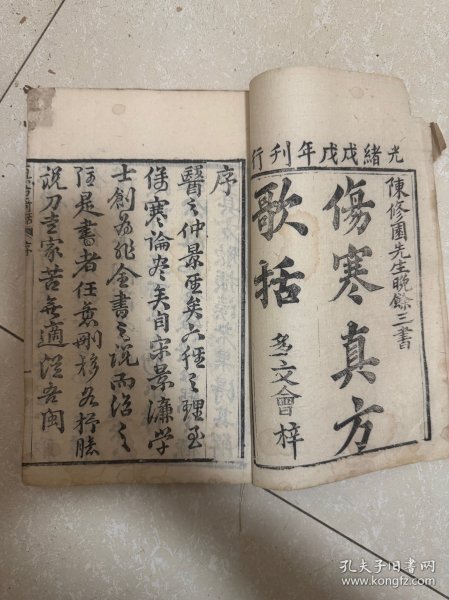 光緒戊戌年刊行
陳修園先生晚餘三書
傷寒真方
歌括
文會梓
序
醫之仲景聖矣六經之理至
傷寒論盡矣自宋景濂學
士創為非全書之說而治之
是書者任意刪移為抄胥
說刀圭家苦無適從吾閩
孔夫子旧书网
www.kongfz.com